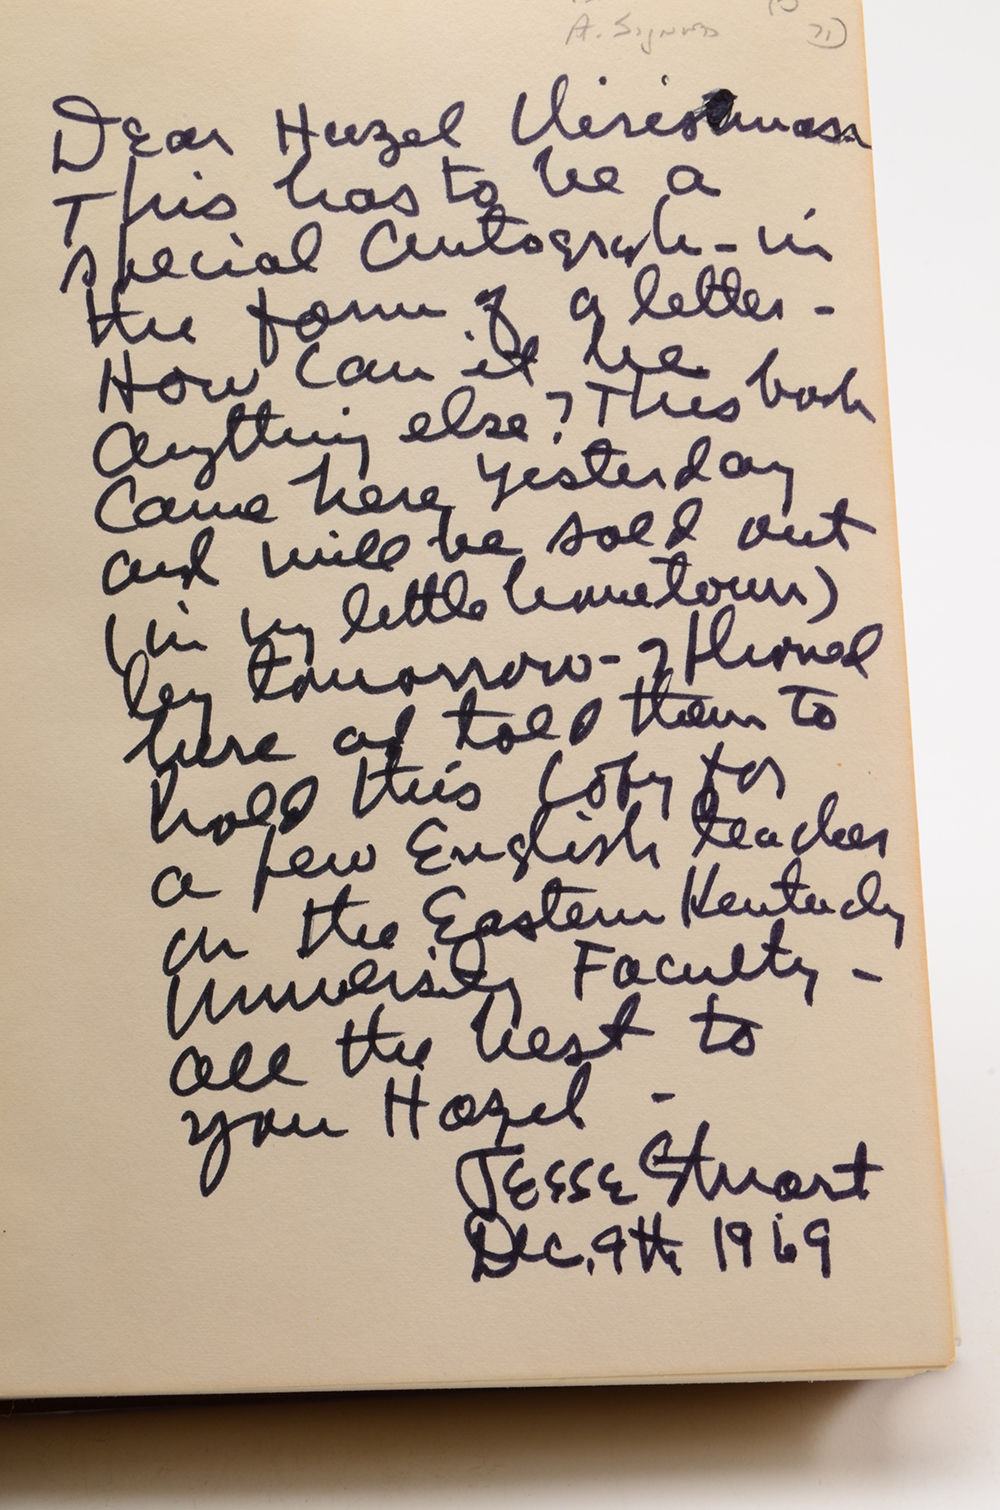 A. Signed
Dear Hazel
This has to be a
special autograph - in
the form of a letter -
How can it be
anything else? This book
came here yesterday
and will be sold out
(in my little hometown)
by tomorrow - I phoned
here and told them to
hold this copy for
a few English teacher
on the Eastern Kentucky
University Faculty -
All the best to
you Hazel -
Jesse Stuart
Dec. 9th 1969